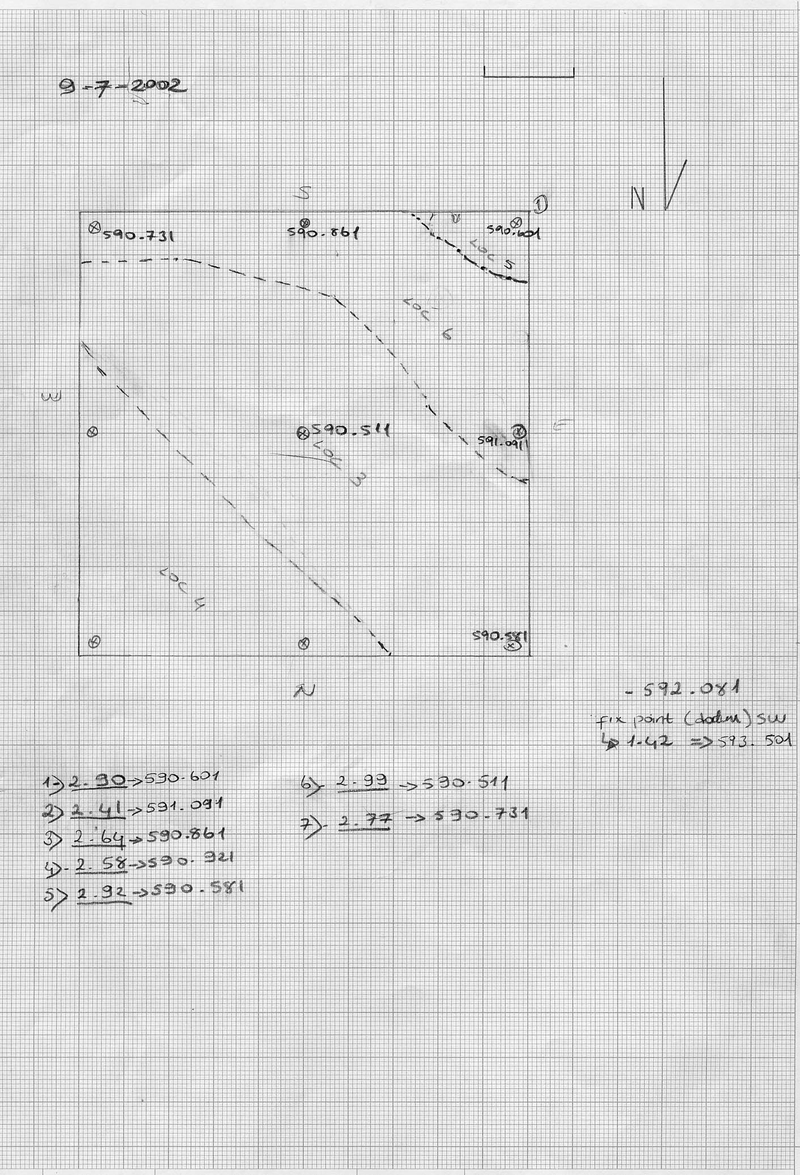 9-7-2002
N
S
D
590.731
590.861
590.601
LOC 5
LOC 6
W
590.511
591.091
E
LOC 3
LOC 4
590.581
N
- 592.081
fix point (datum) SW
↳ 1.42 => 593.501
1) 2.90 → 590.601
2) 2.41 → 591.091
3) 2.64 → 590.861
4)- 2.58 → 590.921
5) 2.92 → 590.581
6)- 2.99 → 590.511
7)- 2.77 → 590.731